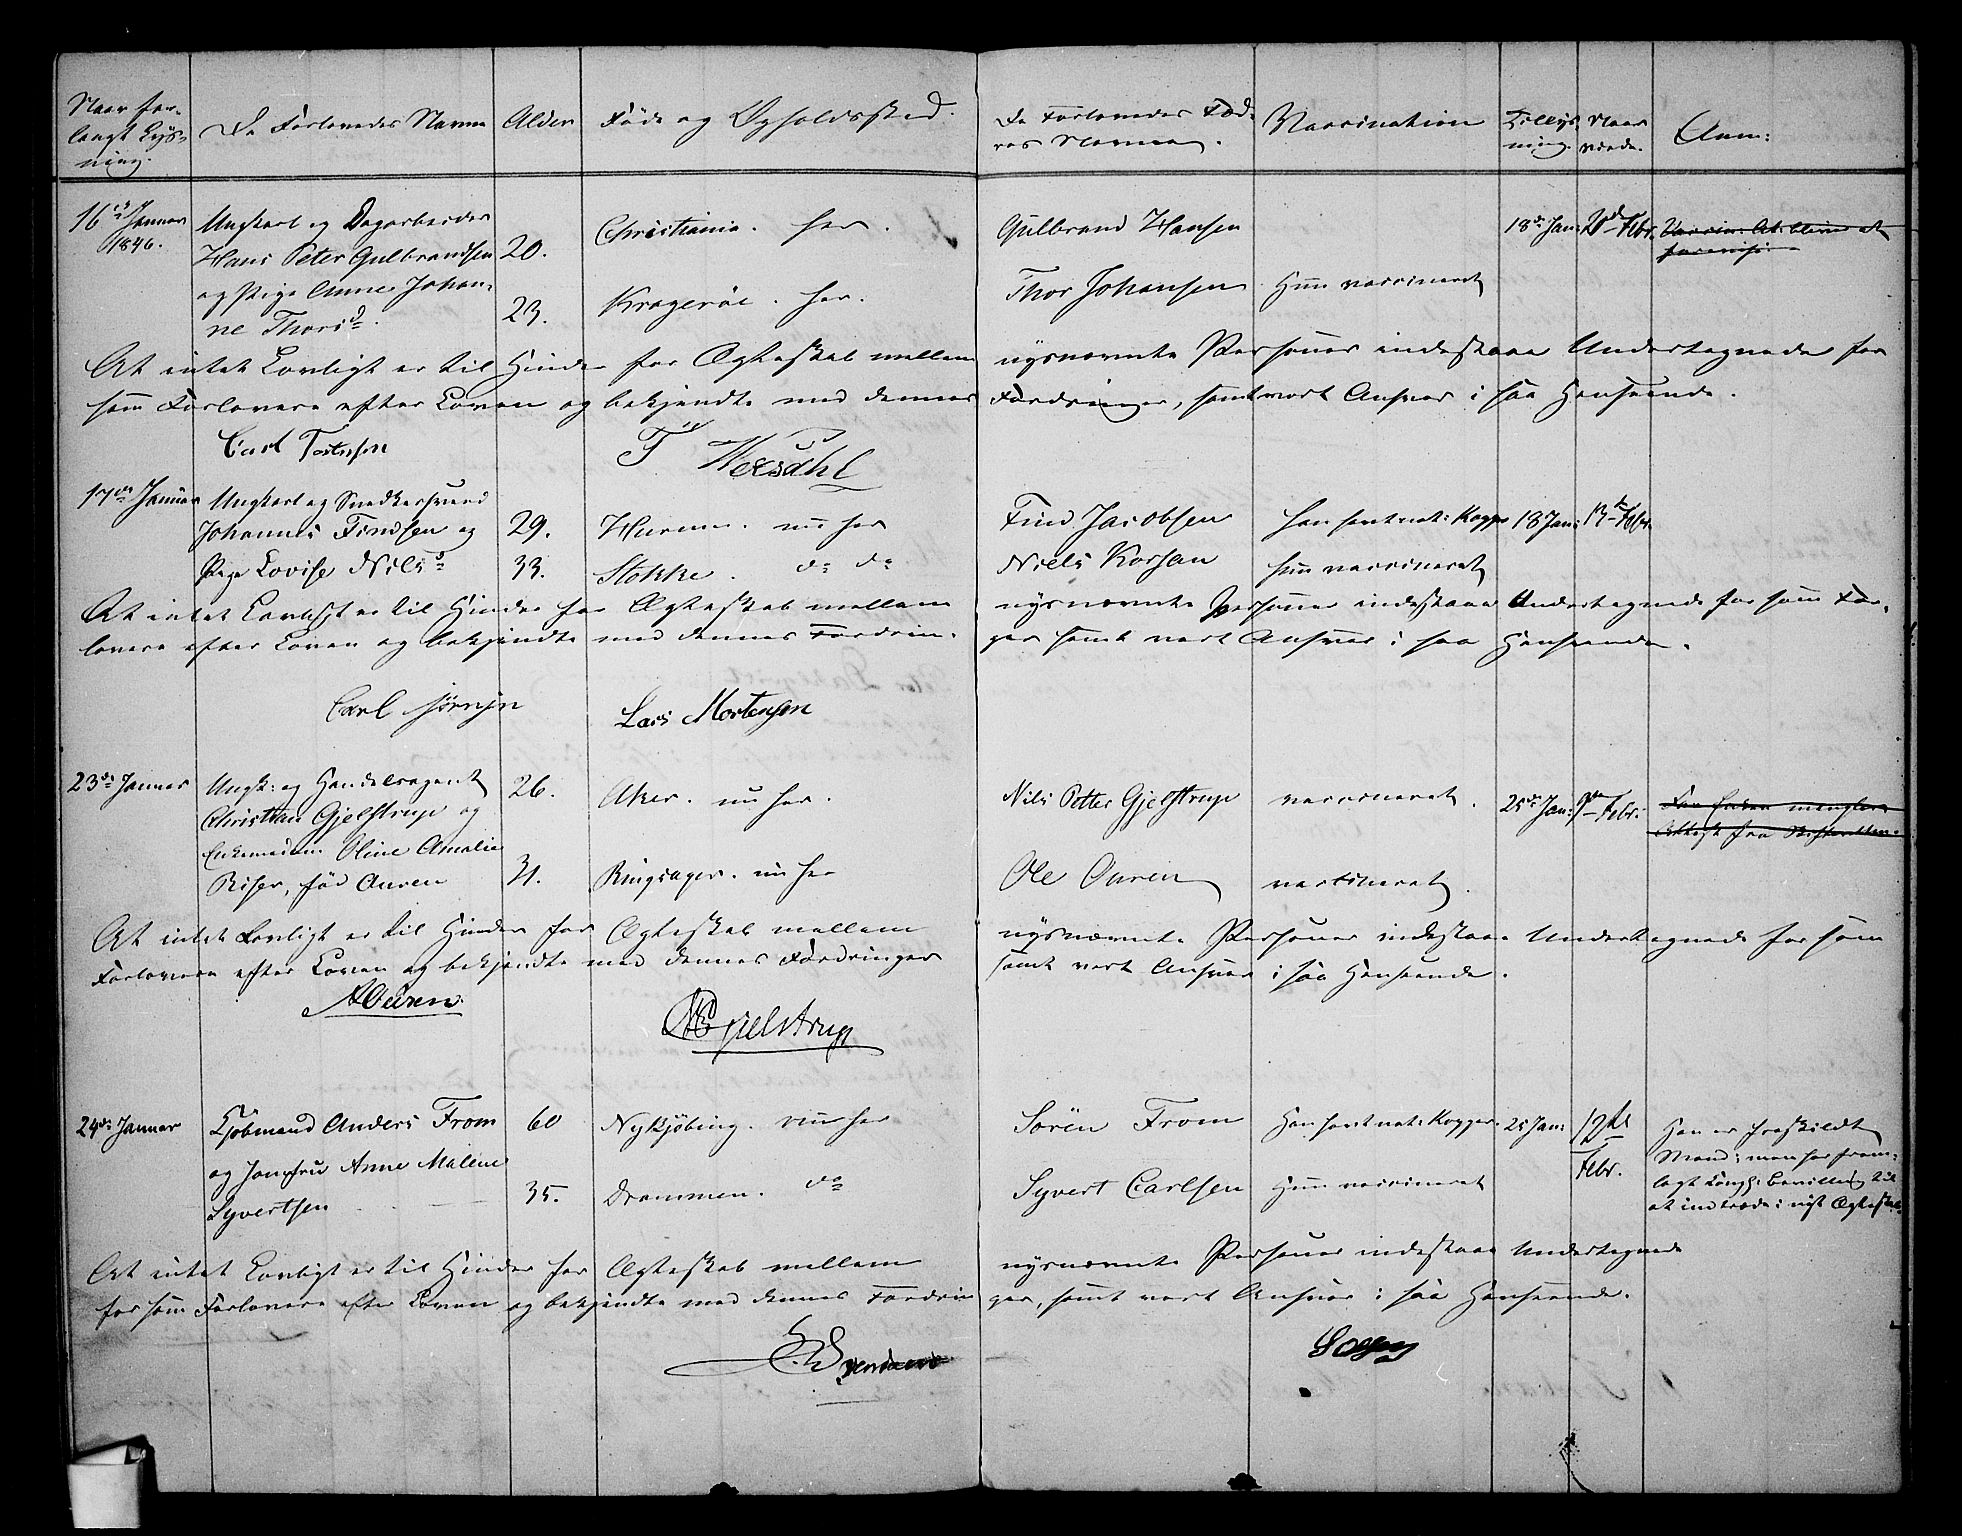 Naar for-
langt Lys-
ning.
De Forlovedes Navne
Alder
Føde og Opholdssted.
De Forlovedes Fæd-
res Navne.
Vaccination
Tillys-
ning.
Naar
viede.
Anm:
16de Januar
1846.
Ungkarl og Dagarbeider
Hans Peter Gulbrandsen
og Pige Anne Johan-
ne Thorsd.
20.
23.
Christiania. her.
Kragerøe. her.
Gulbrand Hansen
Thor Johansen
Hun vaccineret
18de Jan:
2d Febr.
Vaccin: At: bliver at
forevise.
At intet Lovligt er til Hinder for Ægteskab mellem nysnævnte Personer indestaae Undertegnede for
som Forlovere efter Loven og bekjendte med dennes Fordringer, samt vort Ansvar i saa Henseende.
Carl Torstensen
17de Januar
Ungkarl og Snedkersvend
Johannes Findsen og
Pige Lovise Nilsd
29.
33.
Hurum. nu her
Stokke. do do
Find Jacobsen
Niels Korsen
Han havt nat: Kopper
Hun vaccineret
18 Jan:
13de Febr.
At intet Lovligt er til Hinder for Ægteskab mellem nysnævnte Personer indestaae Undertegnede for som For-
lovere efter Loven og bekjendte med dennes Fordrin- ger samt vort Ansvar i saa Henseende.
Carl Jørnsen
Lars Mortensen
23de Januar
Ungk: og Handelsagent
Christian Gjelstrup og
Enkemadam Oline Amalie
Riser, fød Auren
26.
31.
Aker. nu her.
Ringsager. nu her
Nils Petter Gjelstrup
Ole Auren
vaccineret.
vaccineret.
25de Jan:
9de Febr.
For Enken mangler
Attest fra Skifteretten.
At intet Lovligt er til Hinder for Ægteskab mellem nysnævnte Personer indestaae Undertegnede for som
Forlovere efter Loven og bekjendte med dennes Fordringer samt vort Ansvar i saa Henseende.
A Auren.
Gjelstrup
24de Januar
Kjøbmand Anders From
og Jomfru Anne Malene
Syvertsen
60
35.
Nykjøbing. nu her
Drammen. do
Søren From
Syvert Carlsen
Han havt nat: Kopper.
Hun vaccineret
25 Jan:
12te
Febr.
Han er fraskildt
Mand; men har frem-
lagt Kongl: Bevilling til
at indtræde i nyt Ægteskab.
At intet Lovligt er til Hinder for Ægteskab mellem nysnævnte Personer indestaae Undertegnede
for som Forlovere efter Loven og bekjendte med dennes Fordrin ger, samt vort Ansvar i saa Henseende.